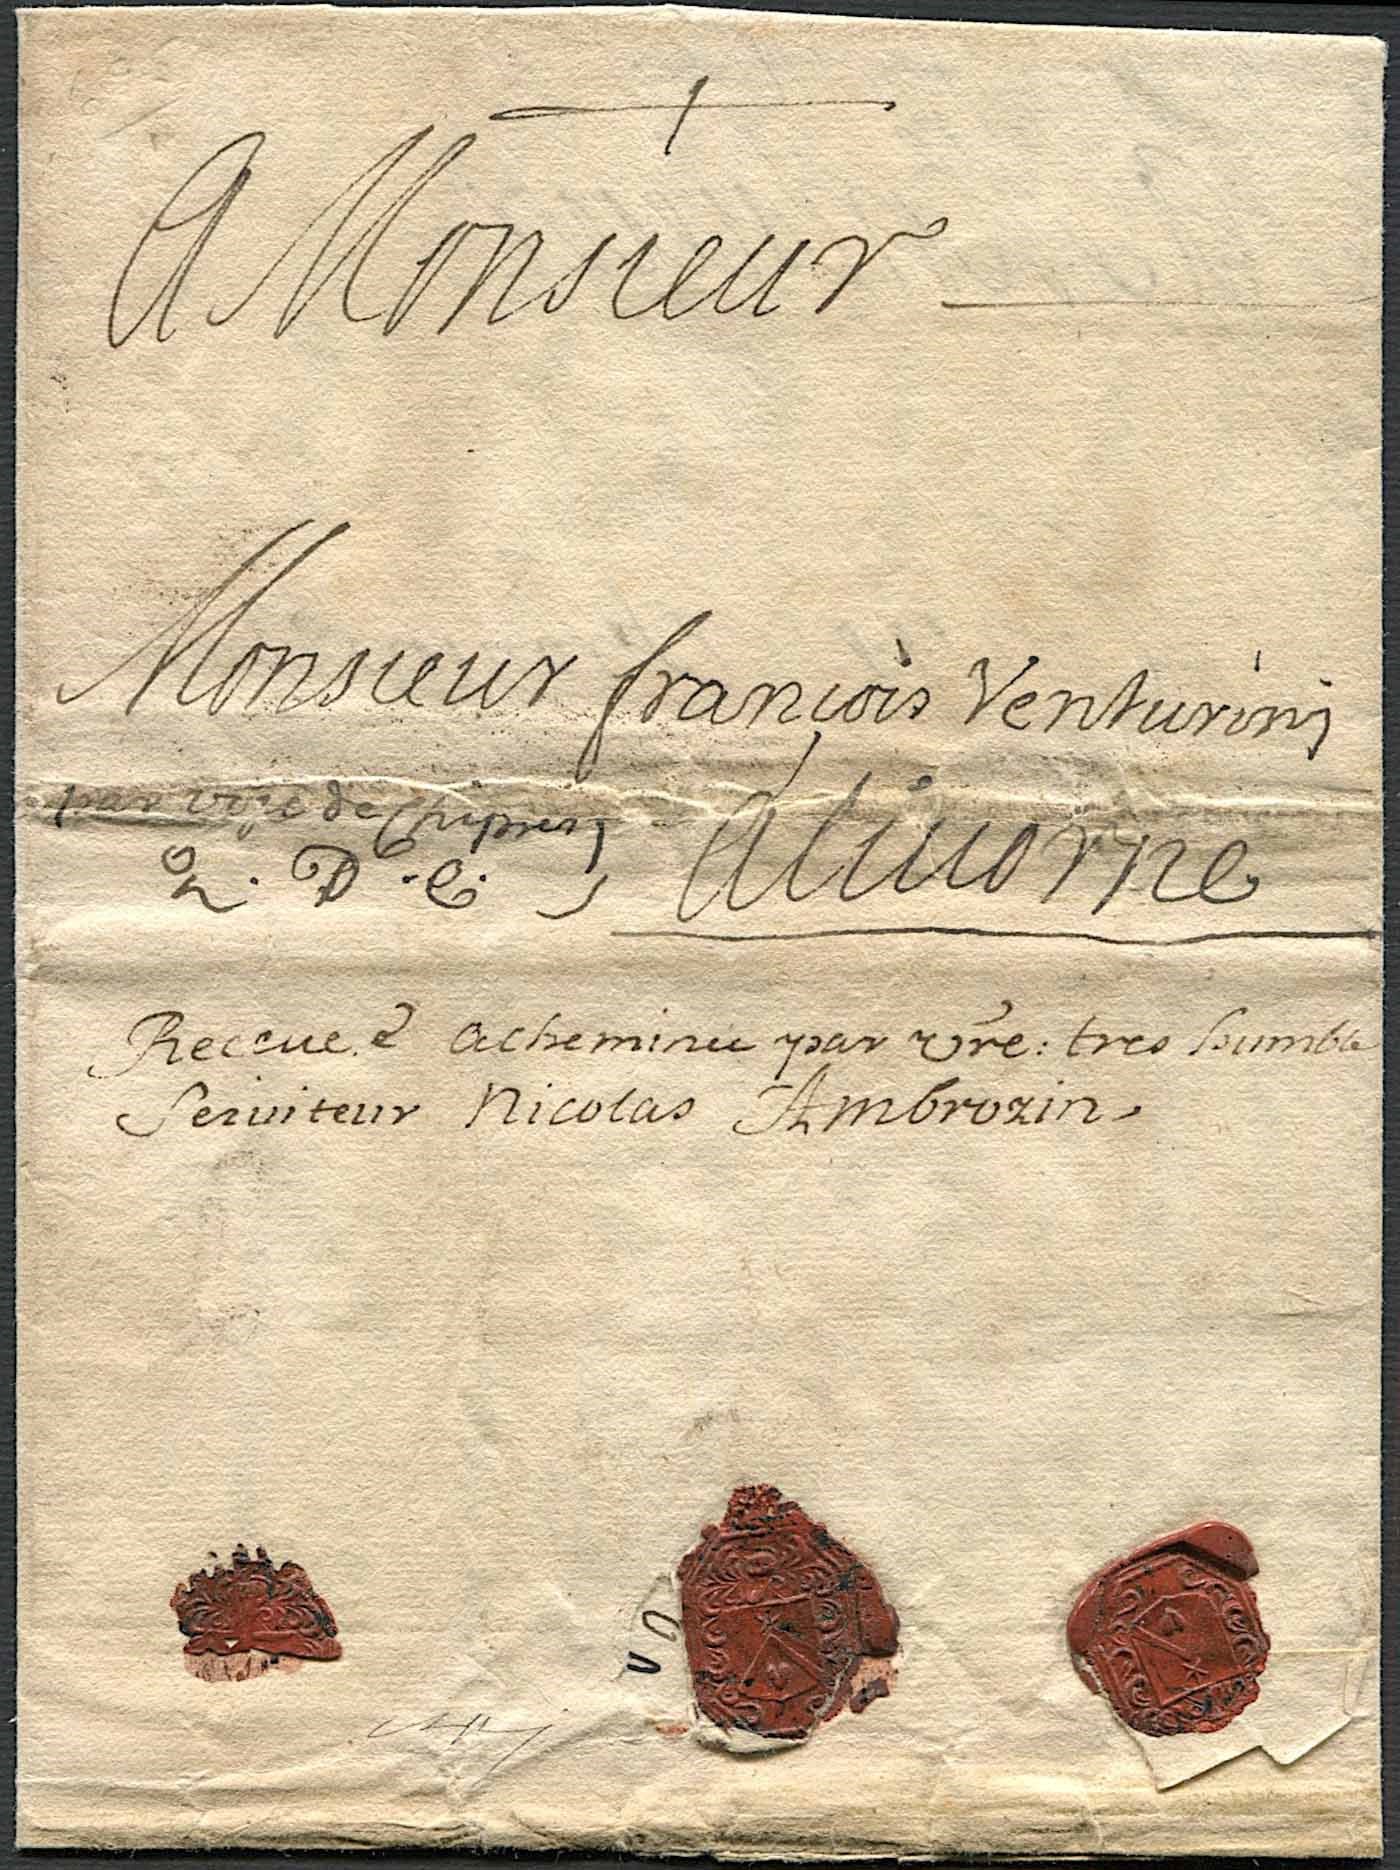 A Monsieur
Monsieur françois Venturinj
par voye de Chipres
L. D. C. Aliuorne
Receue & acheminée par vre: tres humble
Seruiteur Nicolas Ambrozin